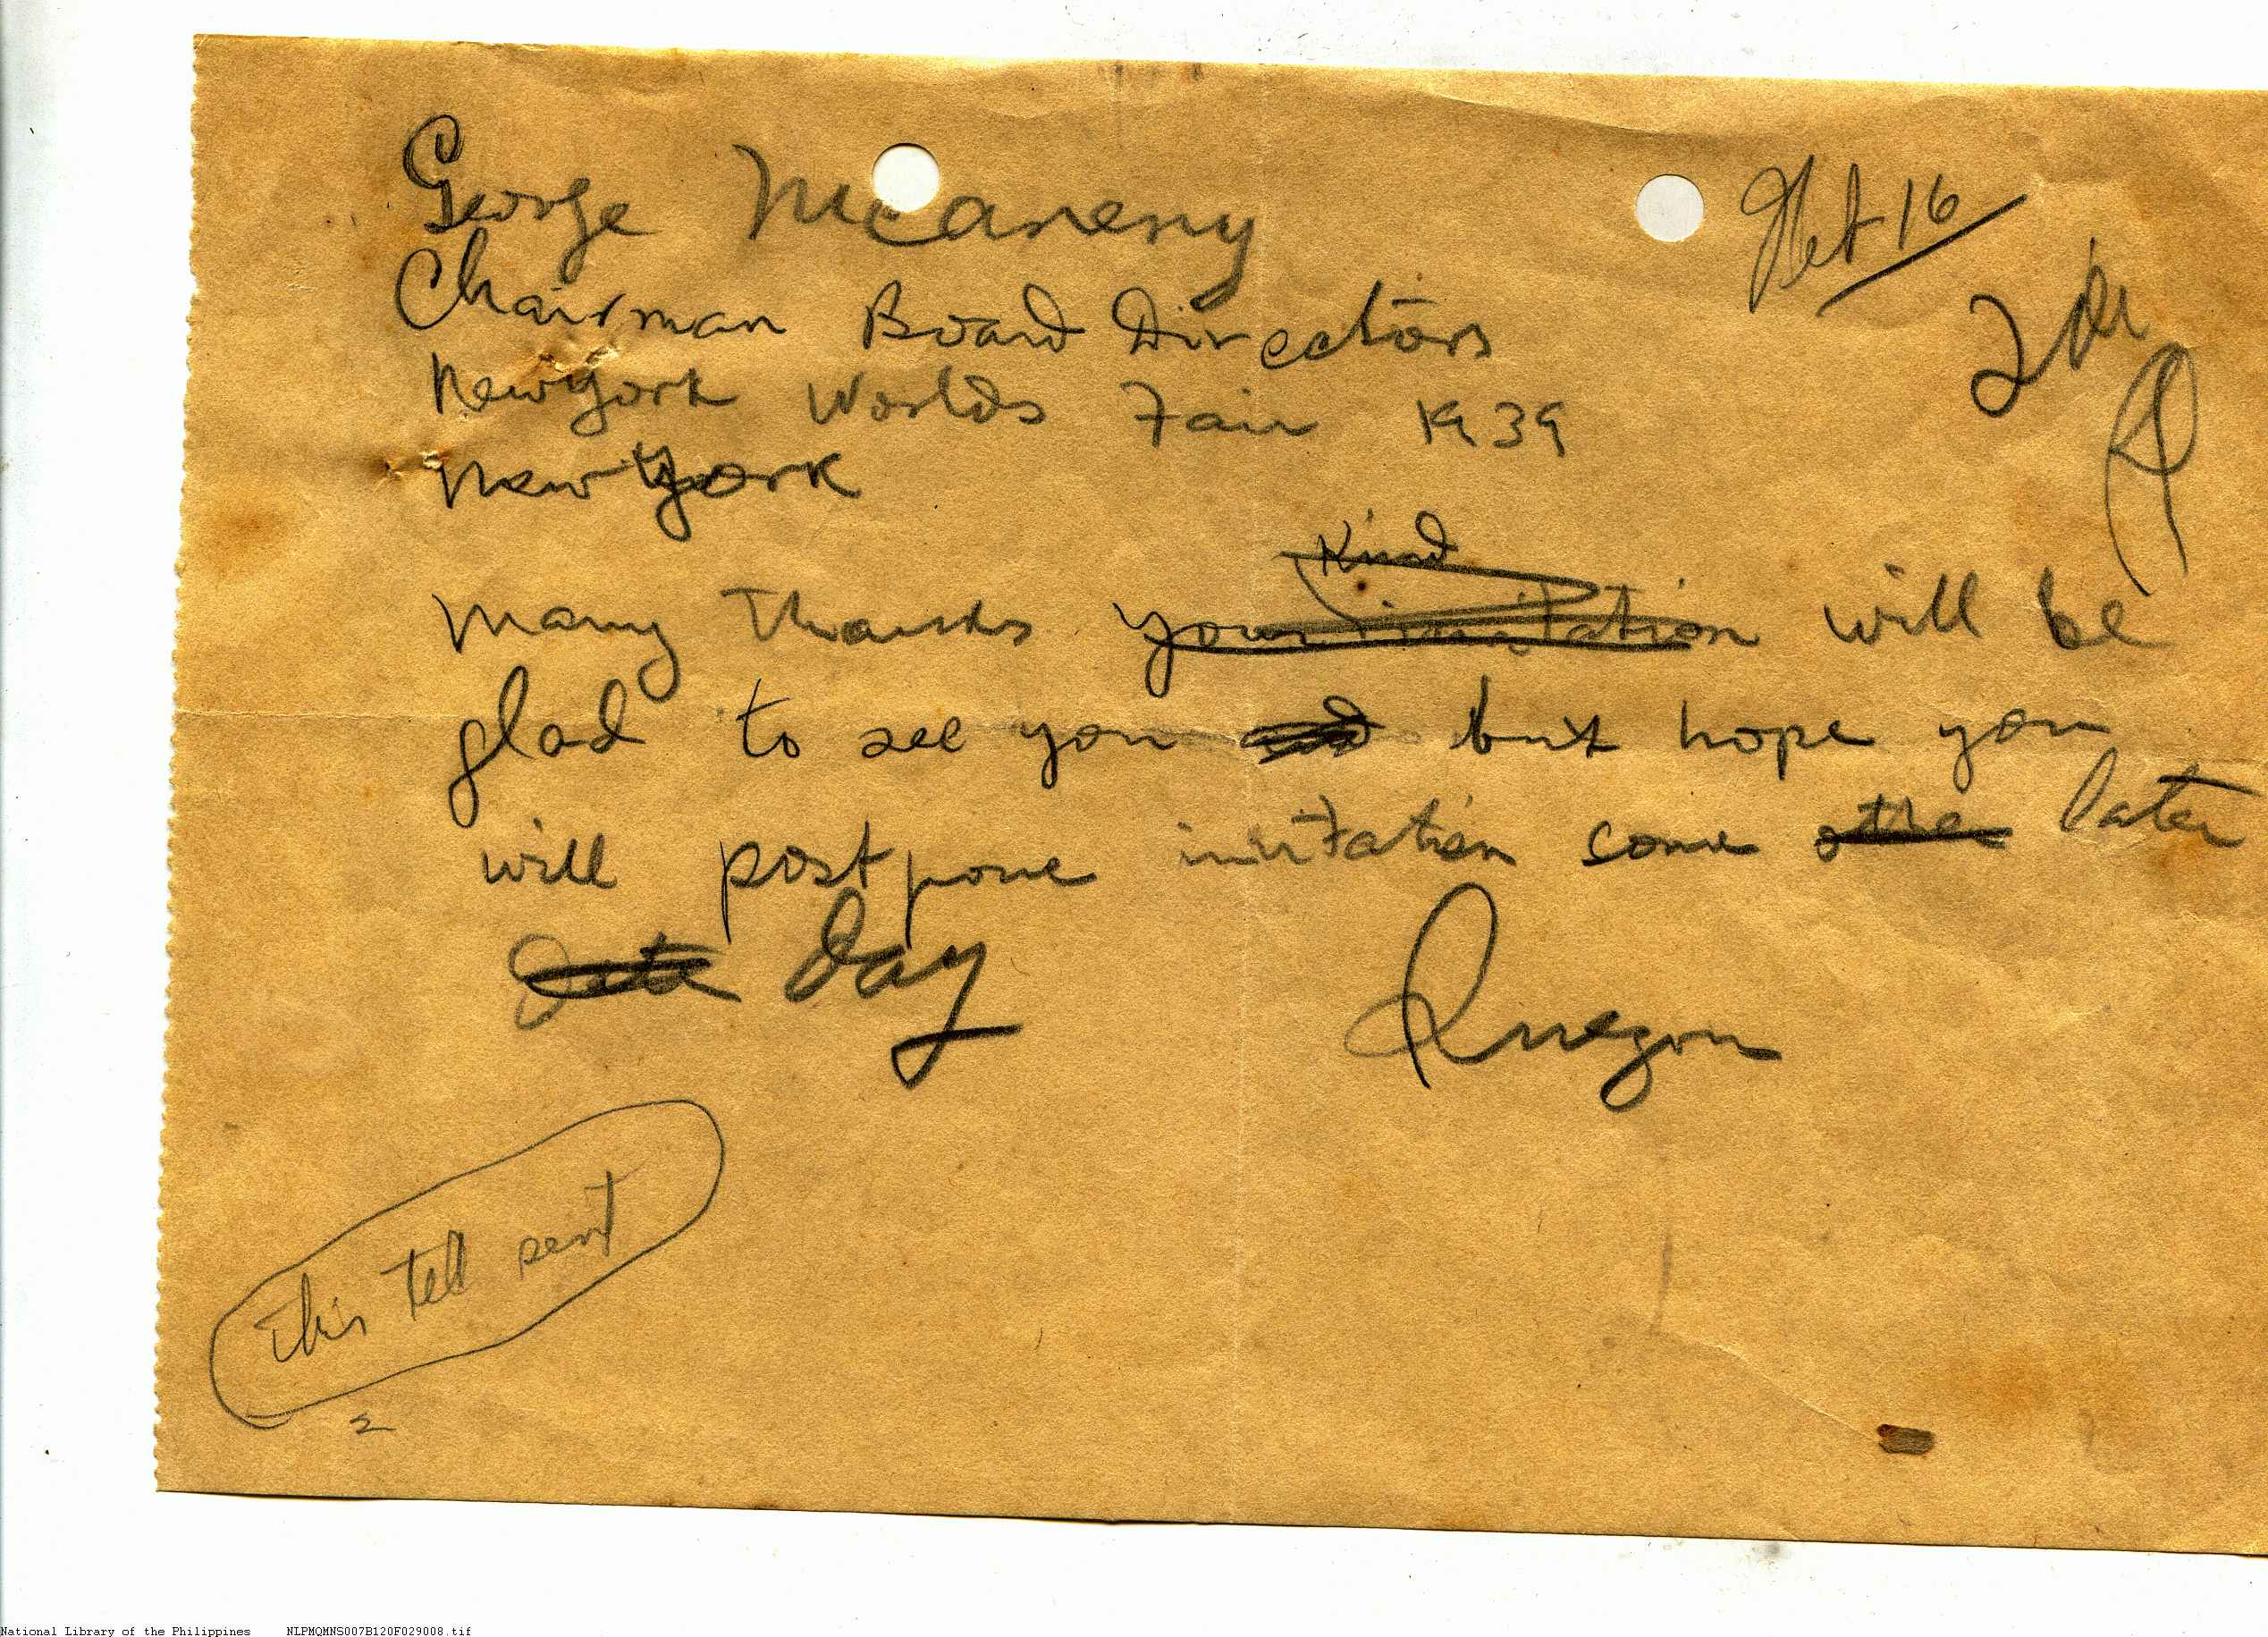 George McAneny
Chairman Board Directors
New York Worlds Fair 1939
New York
16
Kind
Many Thanks your invitation will be
glad to see you and but hope you
will postpone invitation some other later
Date Day
Quezon
This tell sent
2
National Library of the Philippines NLPMQMNS007B120F029008.tif